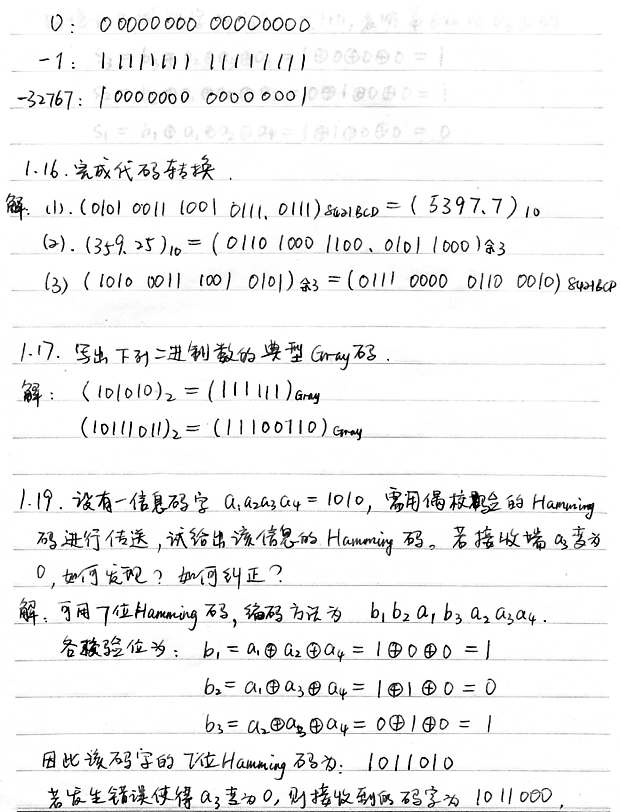 0: 00000000 00000000
-1: 11111111 11111111
-32767: 10000000 00000001
1.16. 完成代码转换.
解: (1). (0101 0011 1001 0111. 0111)8421BCD = (5397.7)10
(2). (359.25)10 = (0110 1000 1100. 0101 1000)余3
(3) (1010 0011 1001 0101)余3 = (0111 0000 0110 0010)8421BCD
1.17. 写出下列二进制数的典型Gray码.
解: (101010)2 = (111111)Gray
(10111011)2 = (11100110)Gray
1.19. 设有一信息码字 a1a2a3a4 = 1010, 需用偶校验的 Hamming
码进行传送, 试给出该信息的 Hamming 码。若接收端 a3变为
0, 如何发现? 如何纠正?
解: 可用7位Hamming码, 编码方法为 b1 b2 a1 b3 a2 a3 a4.
各校验位为: b1 = a1⊕a2⊕a4 = 1⊕0⊕0 = 1
b2 = a1⊕a3⊕a4 = 1⊕1⊕0 = 0
b3 = a2⊕a3⊕a4 = 0⊕1⊕0 = 1
因此该码字的7位Hamming码为: 1011010
若发生错误使得a3变为0, 则接收到的码字为 1011000,